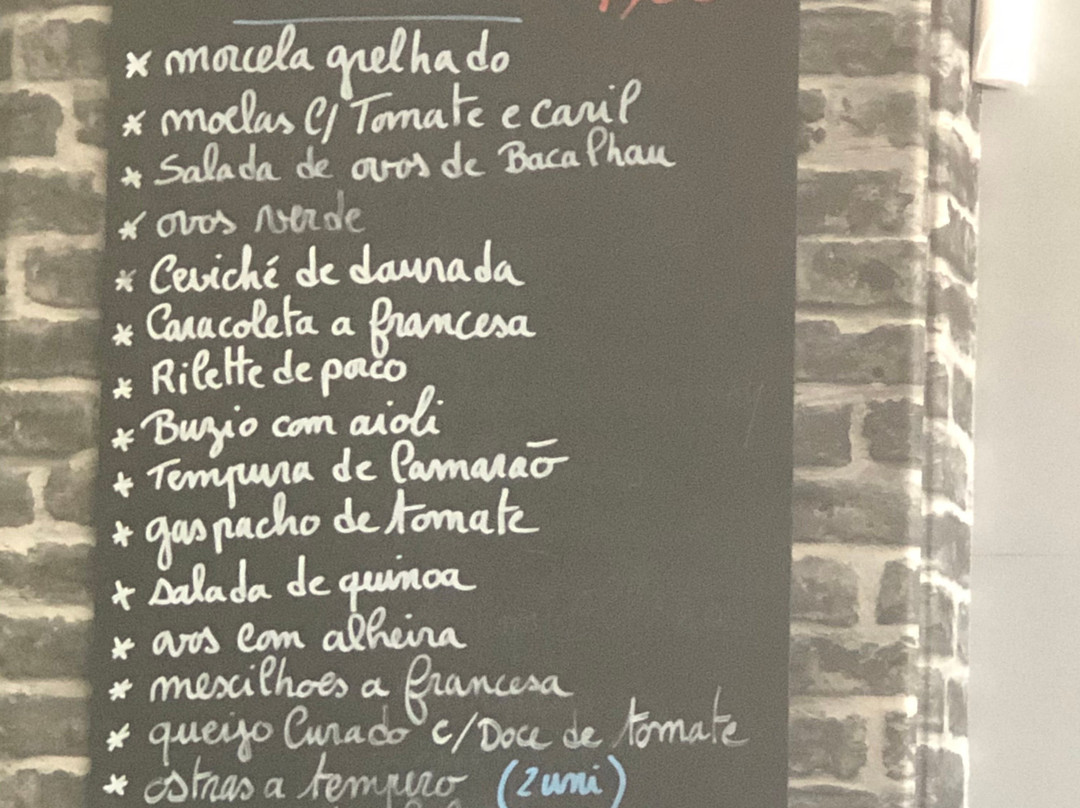 * morcela grelhado
* moelas C/ Tomate e caril
* Salada de ovos de Bacalhau
* ovos verde
* Ceviché de daurada
* Caracoleta a francesa
* Rilette de paco
* Buzio com aioli
* Tempura de Camarão
* gaspacho de tomate
* salada de quinoa
* ovos com alheira
* mescilhoes a francesa
* queijo Curado c/Doce de tomate
* ostras a tempero (2uni)